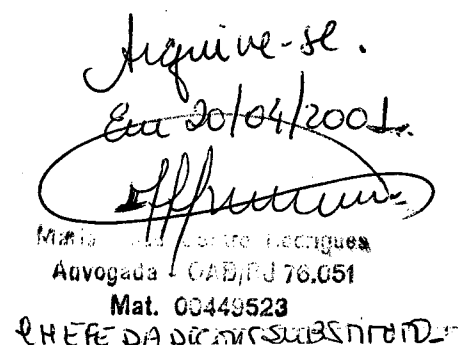 Arquive-se.
Em 20/04/2001.
Maria Rodrigues
Advogada - OAB/RJ 76.051
Mat. 00449523
CHEFE DA SUBSTITUTO